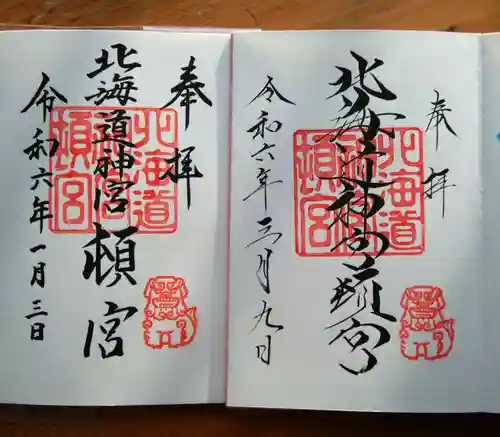 奉拝
北海道神宮頓宮
令和六年一月三日
北海道
神宮
頓宮
奉拝
北海道神宮頓宮
令和六年三月九日
北海道
神宮
頓宮